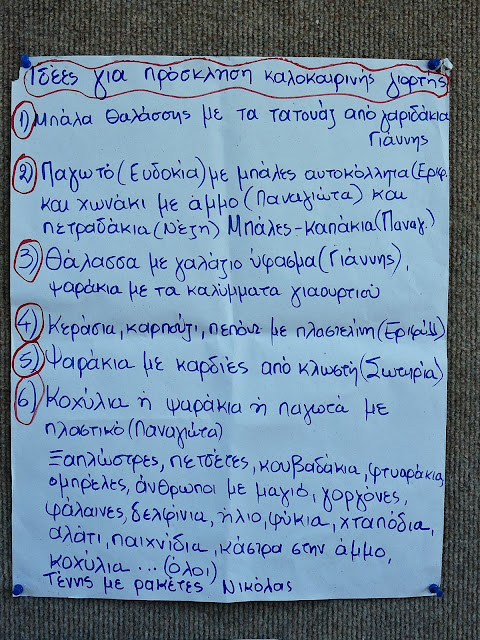 Ιδέες για πρόσκληση καλοκαιρινής γιορτής
1) Μπάλα θαλάσσης με τα τατουάζ από γαριδάκια
Γιάννης
2) Παγωτό (Ευδοκία) με μπάλες αυτοκόλλητα (Εριφ.
και χωνάκι με άμμο (Παναγιώτα) και
πετραδάκια (Νέζη) Μπάλες-καπάκια (Παναγ.)
3) Θάλασσα με γαλάζιο ύφασμα (Γιάννης),
ψαράκια με τα καλύμματα γιαουρτιού
4) Κεράσια, καρπούζι, πεπόνι με πλαστελίνη (Εριφύλη)
5) Ψαράκια με καρδιές από κλωστή (Σωτηρία)
6) Κοχύλια ή ψαράκια ή παγωτά με
πλαστικό (Παναγιώτα)
Ξαπλώστρες, πετσέτες, κουβαδάκια, φτυαράκια,
ομπρέλες, άνθρωποι με μαγιό, γοργόνες,
φάλαινες, δελφίνια, ήλιο, φύκια, χταπόδια,
αλάτι, παιχνίδια, κάστρα στην άμμο,
κοχύλια ... (όλοι)
Τέννις με ρακέτες Νικόλας